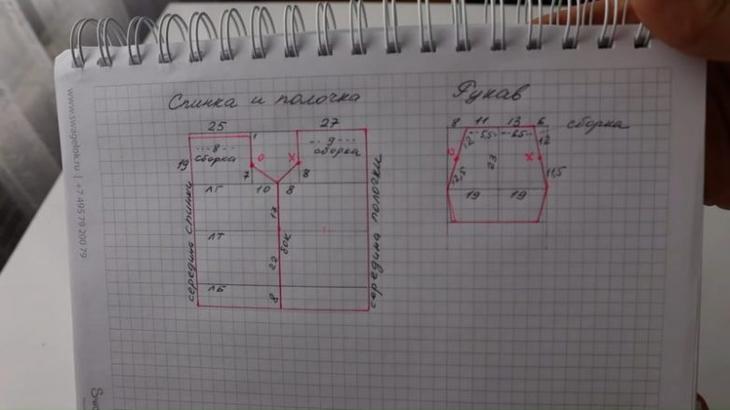 Спинка и полочка
Рукав
25
27
8 11 13 6 сборка
1
5,5 6,5
8
сборка
9
сборка
О
Х
12
12
О
Х
23
19
7
8
12,5
11,5
ЛГ
10 8
19 19
середина спинки
середина полочки
17
бок
ЛТ
22
ЛБ
8
www.swagelok.ru | +7 49579 20079